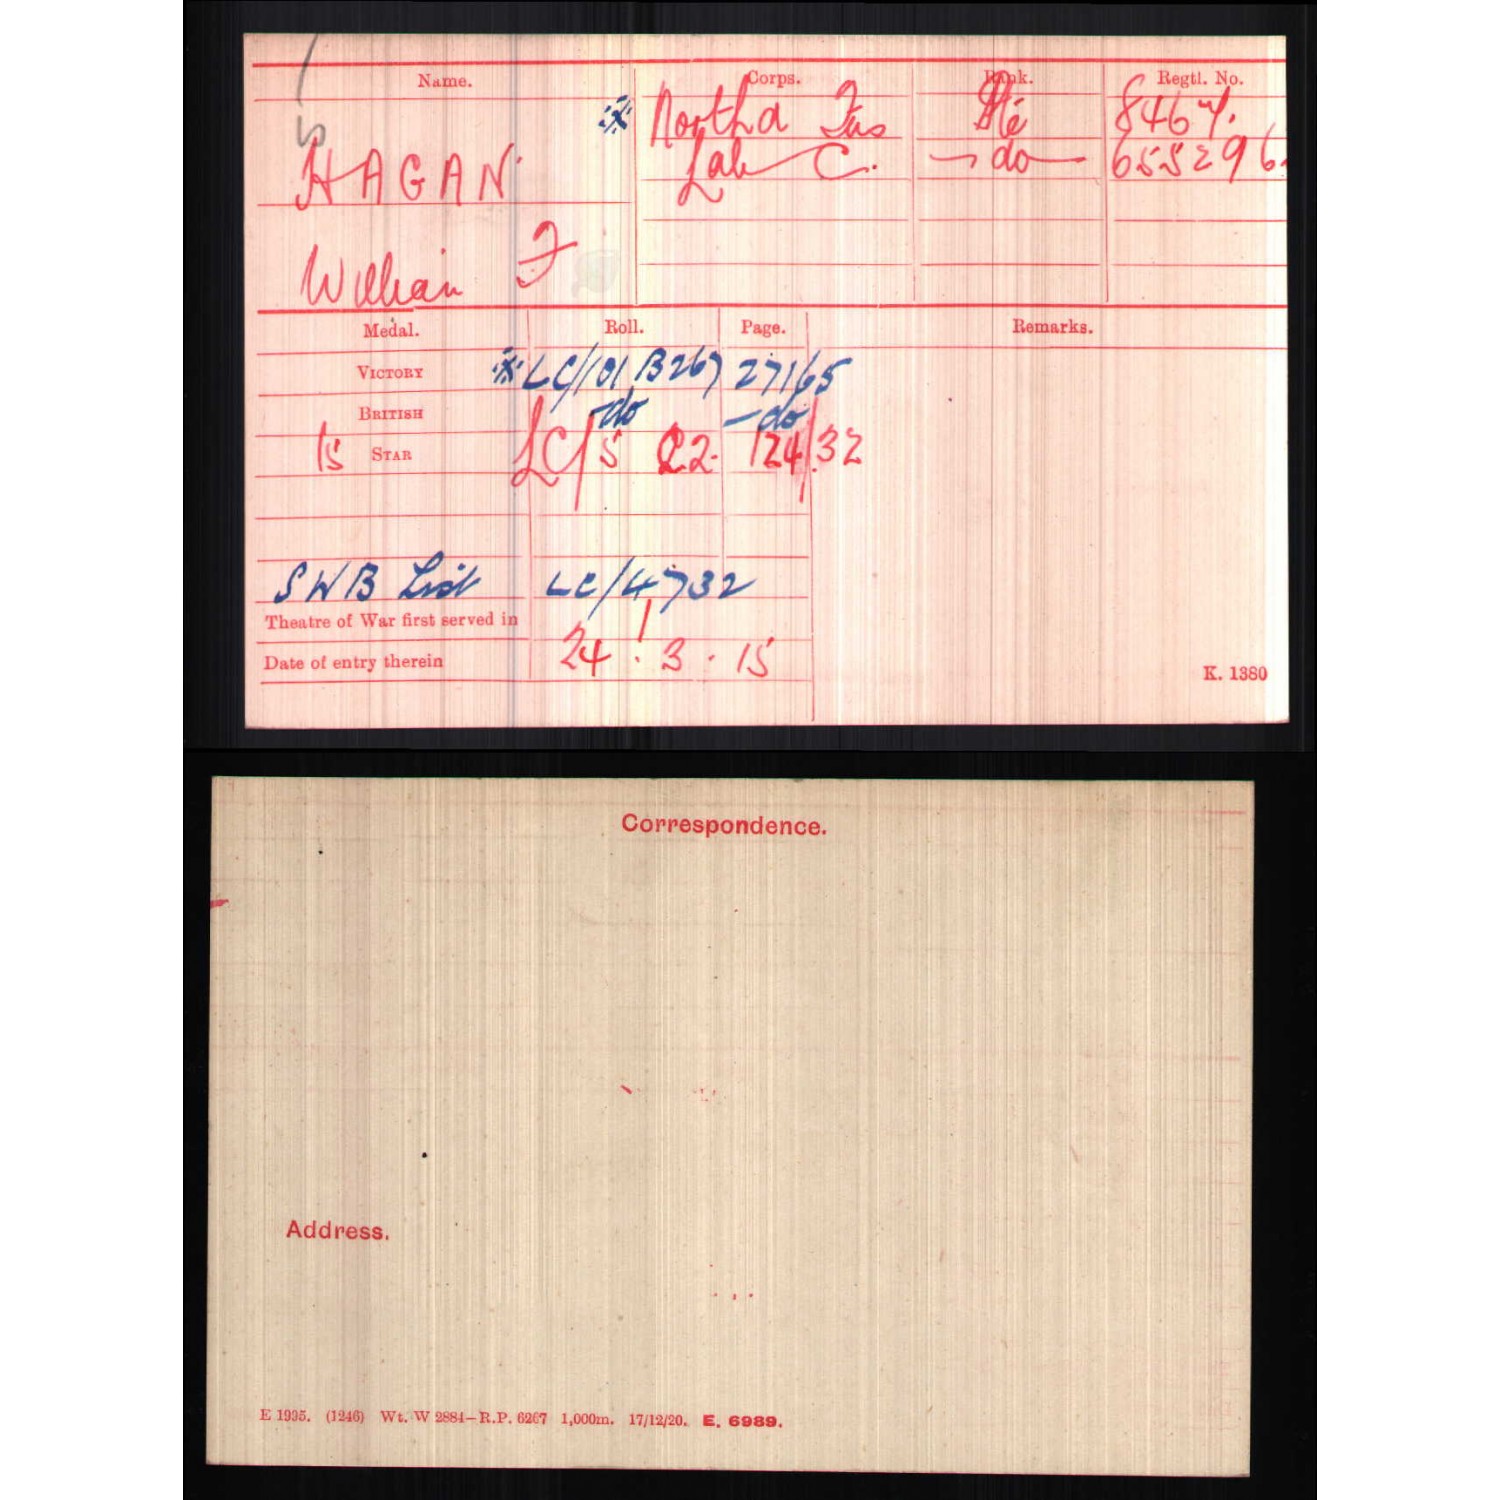 Name. Corps. Rank. Regtl. No.
HAGAN ※ Northd Fus Pte 8467.
William F Lab C. — do — 655296.
Medal. Roll. Page. Remarks.
VICTORY ※ LC/101 B267 27165
BRITISH -do -do
15 STAR LC/5 C2. 124/32
SWB List LC/4732
Theatre of War first served in 1
Date of entry therein 24 . 3 . 15
K. 1380
Correspondence.
Address.
E 1995. (1246) Wt. W 2884—R.P. 6267 1,000m. 17/12/20. E. 6989.